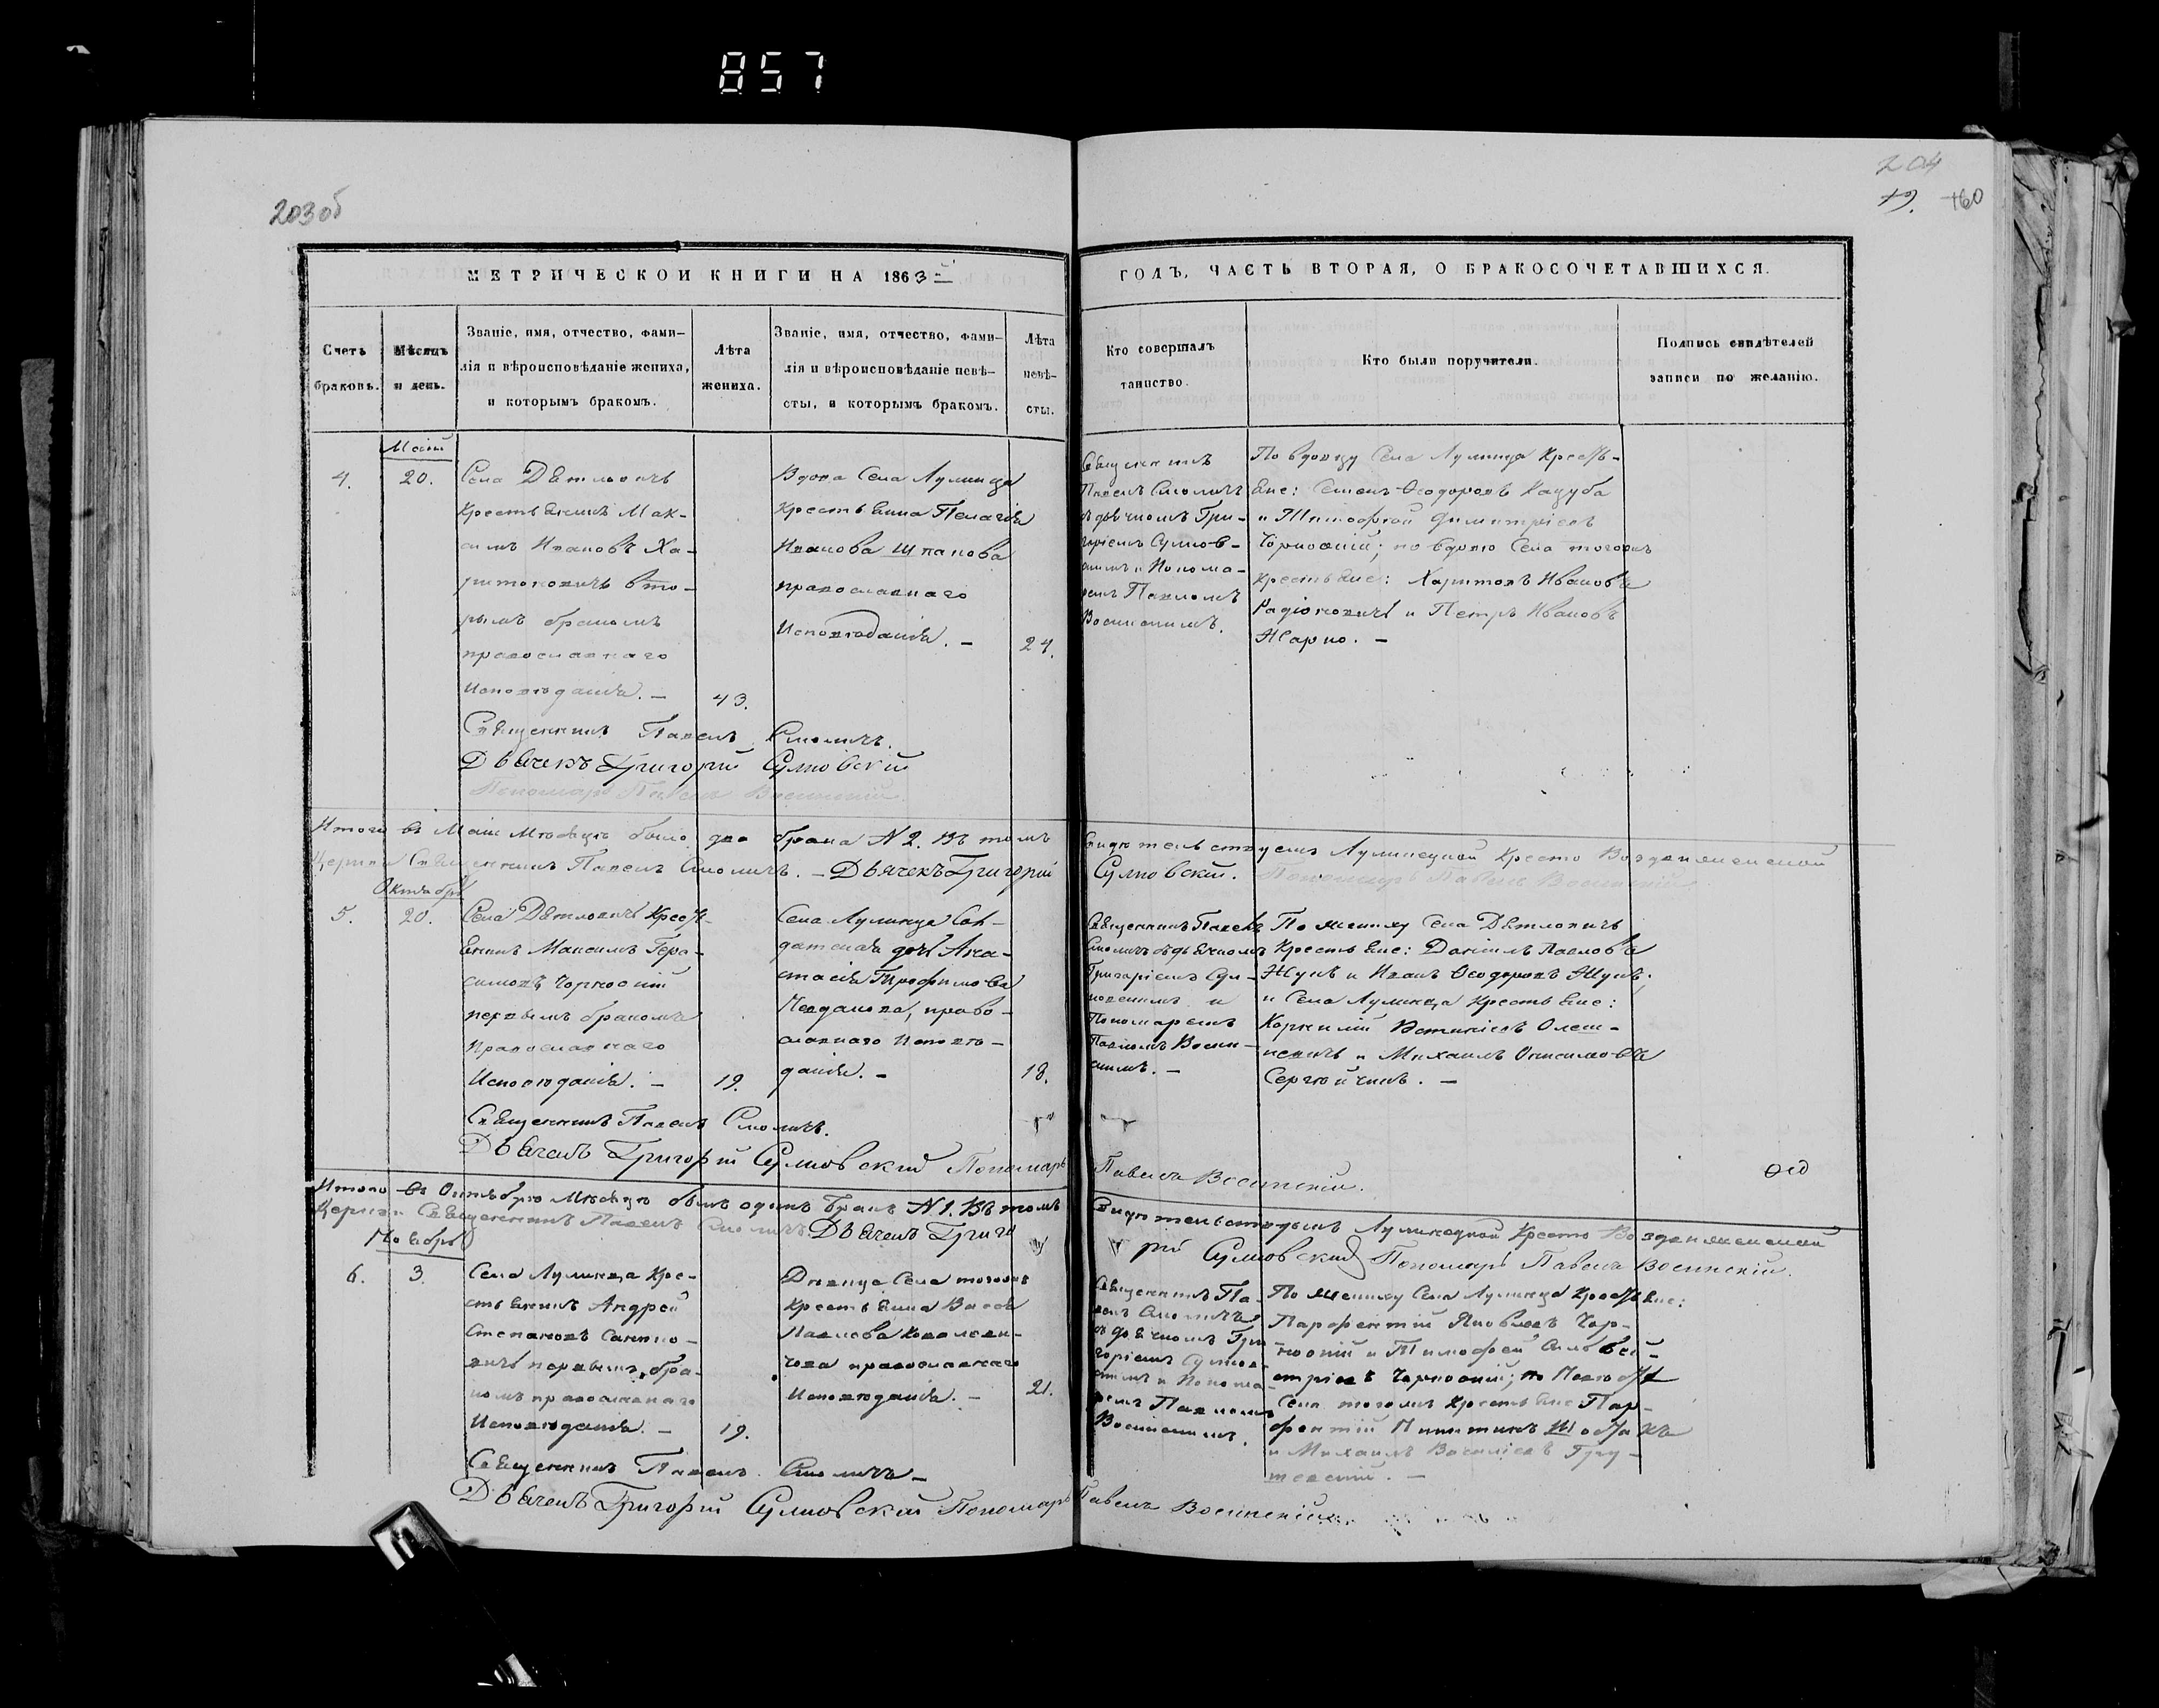 857
203об
204
МЕТРИЧЕСКОЙ КНИГИ НА 1863й
ГОДЪ, ЧАСТЬ ВТОРАЯ, О БРАКОСОЧЕТАВШИХСЯ.
Счетъ
браковъ.
Мѣсяцъ
и день.
Званіе, имя, отчество, фами-
лія и вѣроисповѣданіе жениха,
и которымъ бракомъ.
Лѣта
жениха.
Званіе, имя, отчество, фами-
лія и вѣроисповѣданіе невѣ-
сты, и которымъ бракомъ.
Лѣта
невѣ-
сты.
Кто совершалъ
таинство.
Кто были поручители.
Подпись свидѣтелей
записи по желанію.
Май
4.
20.
Села Дѣтловичъ
Крестьянинъ Мак-
симъ Ивановъ Ха-
ритоновичъ вто-
рымъ бракомъ
православнаго
Исповѣданія. –
43.
Вдова Села Лунинца
Крестьянка Пелагія
Иванова Шпакова
православнаго
Исповѣданія. –
24.
Священникъ
Павелъ Смоличъ
съ дьячкомъ Гри-
горіемъ Сулков-
скимъ и Понома-
ремъ Павломъ
По вдовцу Села Лунинца Кресть-
яне: Семенъ Ѳеодоровъ Кацуба
и Тимофей Димитріевъ
Чорноокій; по вдовѣ Села тогожъ
Крестьяне: Харитонъ Ивановъ
Радіоновичъ и Петръ Ивановъ
Жарко. –
Священникъ Павелъ Смоличъ.
Дьячекъ Григорій Сулковскій
Пономарь Павелъ
Итого въ Маѣ Мѣсяцѣ было два брака N 2. Въ томъ
свидѣтельствуемъ Лунинецкой Кресто Воздвиженской
Церкви Священникъ Павелъ Смоличъ. – Дьячекъ Григорій
Сулковскій. Пономарь Павелъ
Октябрь
5.
20.
Села Дѣтловичъ Кресть-
янинъ Максимъ Гера-
симовъ Чорноокій
первымъ бракомъ
Православнаго
Исповѣданія. –
19.
Села Лунинца Сол-
датская дочь Ана-
стасія Трофимова
православнаго Исповѣ-
данія. –
18.
Священникъ Павелъ
Смоличъ съ дьячкомъ
Григоріемъ Сул-
ковскимъ и
Пономаремъ
По жениху Села Дѣтловичъ
Крестьяне: Даніилъ Павловъ
Жукъ и Иванъ Ѳеодоровъ Жукъ;
и Села Лунинца Крестьяне:
и Михаилъ Онисимовъ
Сергѣйчикъ. –
Священникъ Павелъ Смоличъ.
Дьячекъ Григорій Сулковскій Пономарь
Павелъ
Итого въ Октябрѣ Мѣсяцѣ былъ одинъ бракъ N 1. Въ томъ
Свидѣтельствуемъ Лунинецкой Кресто Воздвиженской
Церкви Священникъ Павелъ Смоличъ Дьячекъ Григо
рій Сулковскій Пономарь Павелъ
Ноябрь
6.
3.
Села Лунинца Кре-
стьянинъ Андрей
первымъ бра-
комъ православнаго
Исповѣданія. –
19.
Дѣвица Села тогожъ
Крестьянка Васса
Павлова
православнаго
Исповѣданія. –
21.
Священникъ Па-
велъ Смоличъ
съ дьячкомъ Гри
горіемъ Сулков-
скимъ и Понома-
ремъ Павломъ
По жениху Села Лунинца Крестьяне:
Парфентій Яковлевъ Чор-
ноокій и Тимофей
Чорноокій; по Невѣстѣ
Села тогожъ Крестьяне Пар-
фентій Никитинъ
и Михаилъ
Священникъ Павелъ Смоличъ –
Дьячекъ Григорій Сулковскій Пономарь
Павелъ